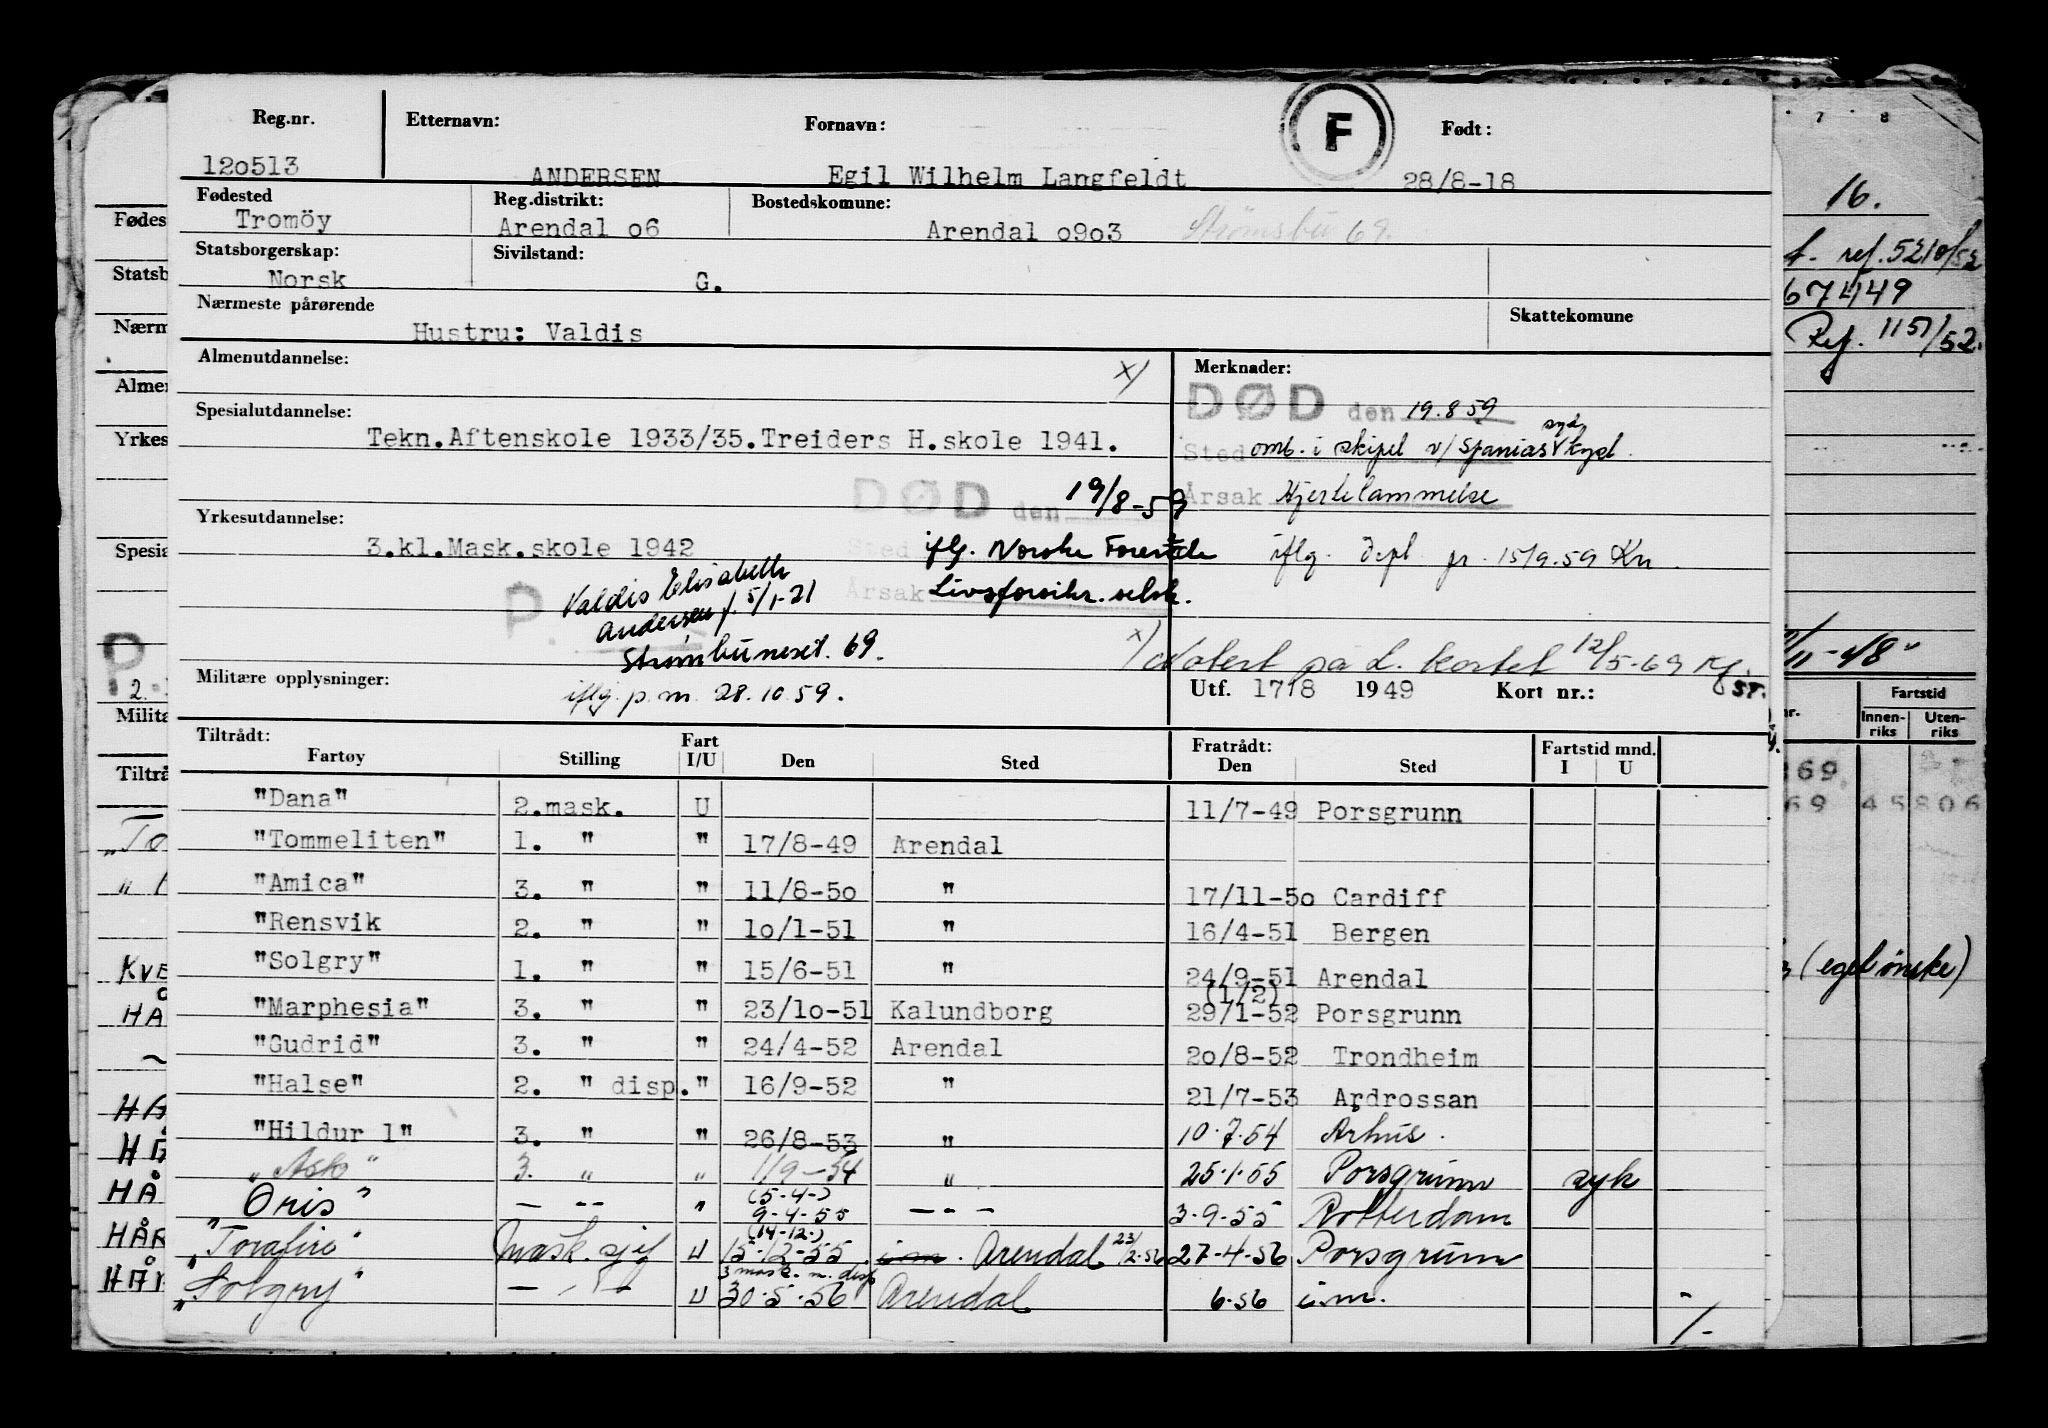 Reg.nr. Etternavn: Fornavn: F Født:
120513 ANDERSEN Egil Wilhelm Langfeldt 28/8-18
Fødested Reg.distrikt: Bostedskomune:
Tromöy Arendal o6 Arendal o9o3 Strømsbu 69.
Statsborgerskap: Sivilstand:
Norsk G.
Nærmeste pårørende Skattekomune
Hustru: Valdis
Almenutdannelse: x) Merknader:
DØD den 19.8 59
Spesialutdannelse:
Tekn.Aftenskole 1933/35.Treiders H.skole 1941.
Sted omb. i skipet v/ Spanias syd kyst.
Årsak Hjertelammelse
DØD den 19/8-59
Yrkesutdannelse:
3.kl.Mask.skole 1942
Sted iflg. Norske Forenede
iflg. depl. pr. 15/9.59 Kn.
Årsak Livsforsikr. selsk.
P. Valdis Elisabeth
Andersen f. 5/1-21
Strømbuneset. 69.
x) Notert på L. kortet 12/5-69 Kf.
Militære opplysninger: iflg. p.m. 28.10.59.
Utf. 1718 1949 Kort nr.: ST.
Tiltrådt: Fratrådt: Fartstid mnd.
Fartøy Stilling Fart I/U Den Sted Den Sted I U
"Dana" 2.mask. U 11/7-49 Porsgrunn
"Tommeliten" 1. " " 17/8-49 Arendal
"Amica" 3. " " 11/8-5o " 17/11-5o Cardiff
"Rensvik 2. " " 1o/1-51 " 16/4-51 Bergen
"Solgry" 1. " " 15/6-51 " 24/9-51 Arendal
(1/2)
"Marphesia" 3. " " 23/1o-51 Kalundborg 29/1-52 Porsgrunn
"Gudrid" 3. " " 24/4-52 Arendal 2o/8-52 Trondheim
"Halse" 2. " disp. " 16/9-52 " 21/7-53 Ardrossan
"Hildur 1" 3. " " 26/8-53 " 10.7.54 Århus.
"Ask" 3. " " 1/9-54 " 25.1.55 Porsgrunn syk
(5-4-)
Oris" — -- " 9-4-55 — - - 3.9.55 Rotterdam
(14-12-)
"Torafire" Mask.sjef U 15.12-55. i.m. Arendal 23/2.56 27-4-56 Porsgrunn
3 mask. m. disp
"Solgry" — " — U 30.5.56 Arendal 6.56 i.m.
1-
7 8
16.
ref. 5210/52
67449
Ref. 1151/52.
/11-48"
Fartstid
Innen-riks Uten-riks
69
69 45 806
(eget ønske)
Fødes
Statsb
Nærm
Almer
Yrkes
Spesia
P.
2.
Milita
Tiltrå
"To
KVE
HA
HÅ
HÅR